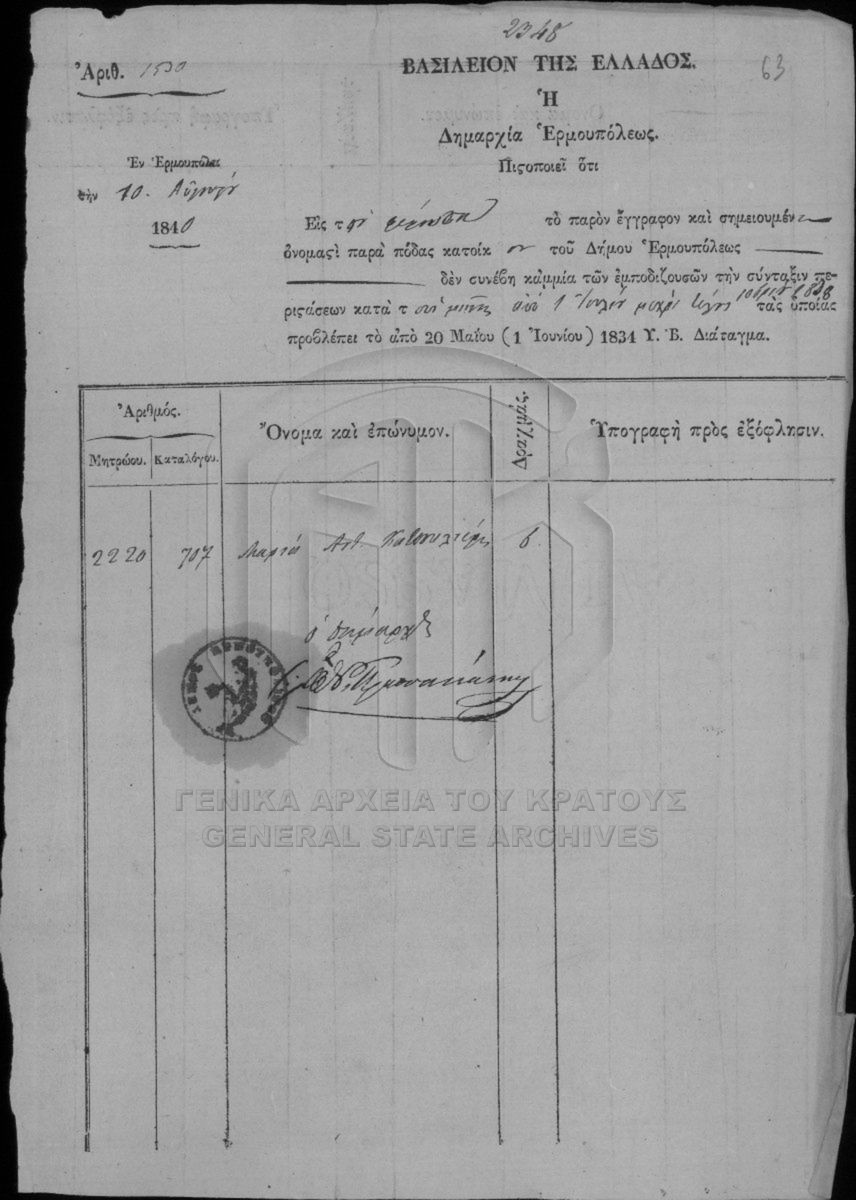 2348
Ἀριθ. 1530
ΒΑΣΙΛΕΙΟΝ ΤΗΣ ΕΛΛΑΔΟΣ.
63
Ἡ
Δημαρχία Ἑρμουπόλεως.
Πιςοποιεῖ ὅτι
Ἐν Ἑρμουπόλει
τὴν 10
1840
Εἰς τ τὸ παρὸν ἔγγραφον καὶ σημειουμέν
ὀνομαςὶ παρὰ πόδας κατοίκ ον τοῦ Δήμου Ἑρμουπόλεως
δὲν συνέβη καμμία τῶν ἐμποδιζουσῶν τὴν σύνταξιν πε-
ριςάσεων κατὰ τ ἀπὸ 1 Ἰουλίου μέχρι τέλους 1838 τὰς ὁποίας
προβλέπει τὸ ἀπὸ 20 Μαΐου (1 Ἰουνίου) 1834 Υ. Β. Διάταγμα.
Ἀριθμός.
Μητρώου. Καταλόγου.
Ὄνομα καὶ ἐπώνυμον.
Δραχμάς.
Ὑπογραφὴ πρὸς ἐξόφλησιν.
2220 707 Μαρία Αντ. 6
ὁ δήμαρχος
ΓΕΝΙΚΑ ΑΡΧΕΙΑ ΤΟΥ ΚΡΑΤΟΥΣ
GENERAL STATE ARCHIVES